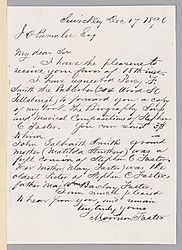 Sewickley Dec 17 1896
J. O. Parmlee Esq
My dear Sir
I have the pleasure to
receive your favor of 15th inst.
I have requested Mr. P. F.
Smith the Publisher Wood St
Pittsburgh to forward you a copy
of my book of Biography, Songs
and Musical Compositions of Stephen
C. Foster. You can send
to him.
John Galbraith Smith's grand
mother (Matilda Struthers) was a
full cousin of Stephen C. Foster.
Her mother Mary Foster was the
oldest sister of Stephen C. Foster's
father Wm Barclay Foster.
I am much pleased
to hear from you and remain
Very truly yours
Morrison Foster